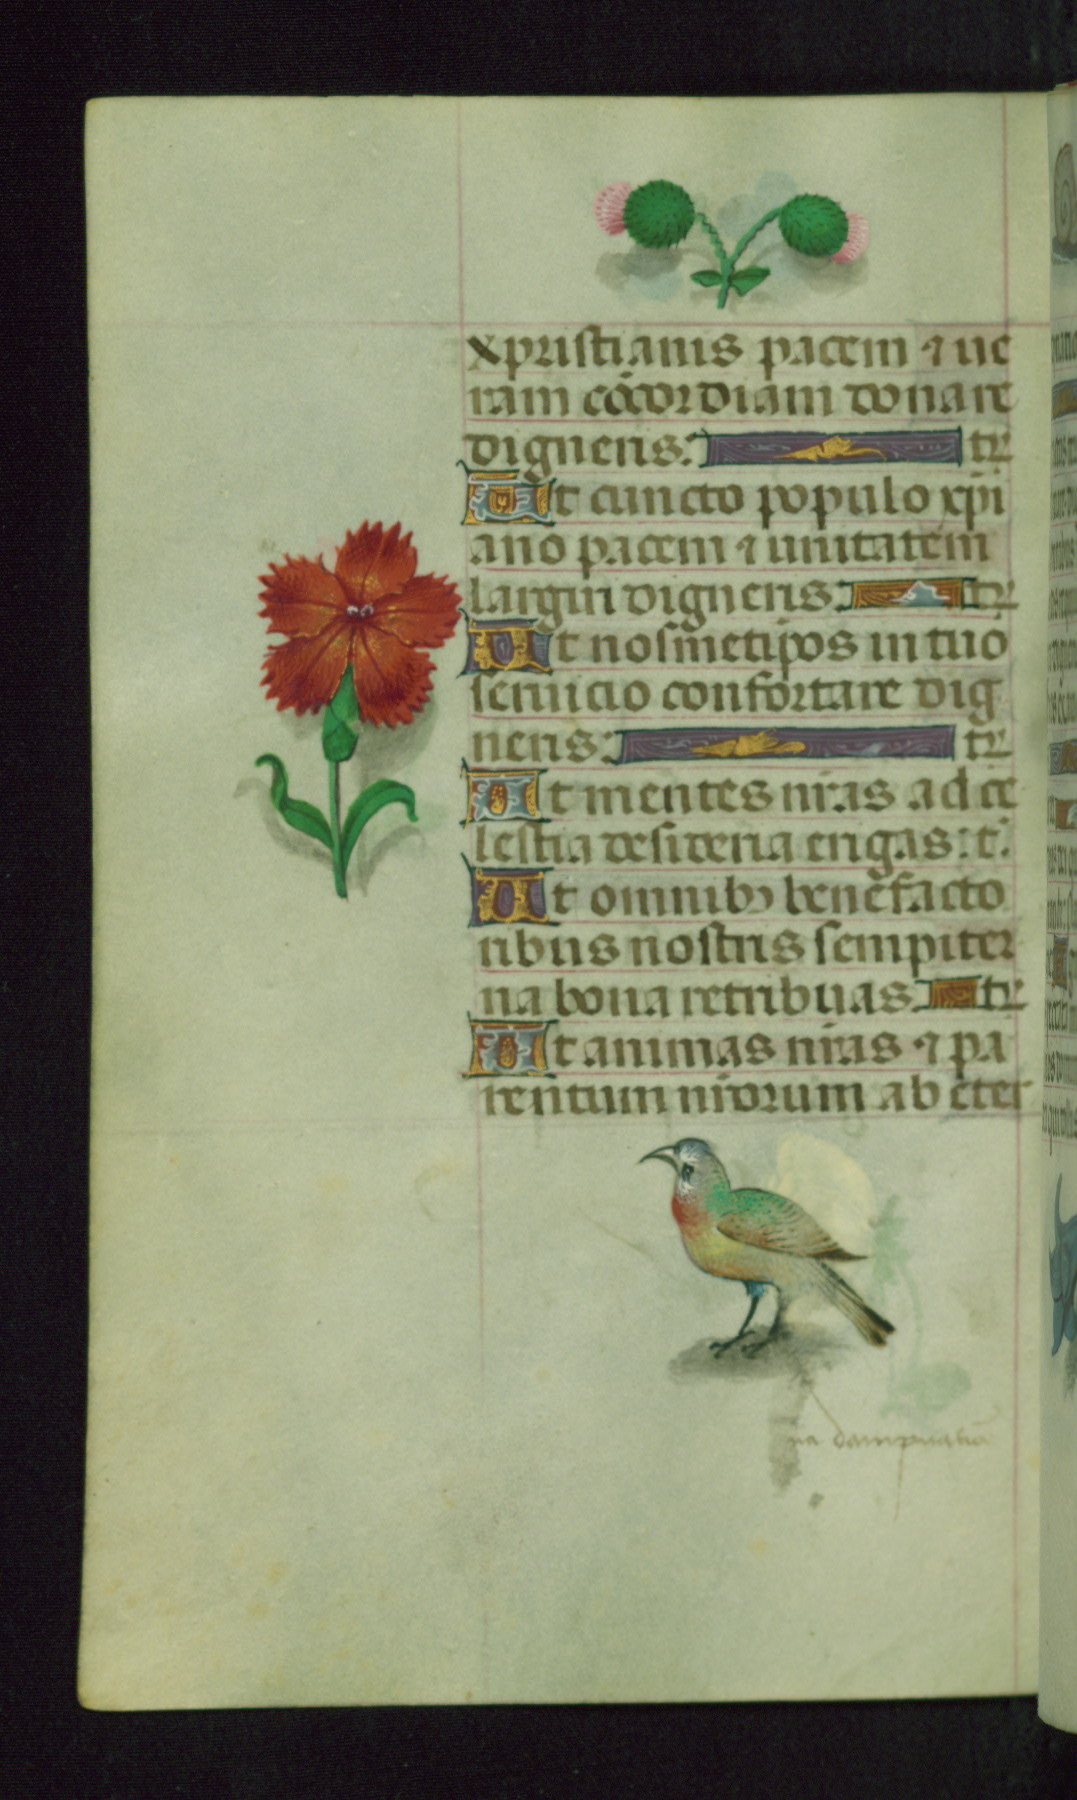 xpristianis pacem ⁊ ue
ram cōcordiam donare
digneris: tr̄
Ut cuncto populo xp̄i
ano pacem ⁊ unitatem
largiri digneris: tr̄
Ut nosmetipos in tuo
seruicio confortare dig
neris: tr̄
Ut mentes nr̄as ad ce
lestia desideria erigas: t̄.
Ut omnibꝫ benefacto
ribus nostris sempiter
na bona retribuas: tr̄
Ut animas nr̄as ⁊ pa
rentum nr̄orum ab eter